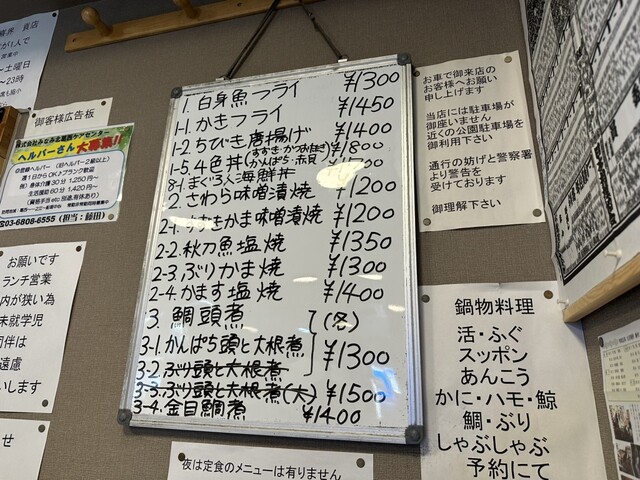 が1人で
～土曜日
～23時
お客様広告板
株式会社みなみ北葛西ケアセンター
ヘルパーさん大募集!!
週1日からOK♪ブランク歓迎
身体介護30分 1,250円～
生活援助60分 1,420円～
☎03-6808-6555
お願いです
ランチ営業
内が狭い為
未就学児
同伴は
遠慮
いします
1. 白身魚フライ ¥1300
1-1. かきフライ ¥1450
1-2. ちびき唐揚げ ¥1400
1-5. 4色丼 ¥1800
8-1. まぐろ人海鮮丼
2. さわら味噌漬焼 ¥1200
味噌漬焼 ¥1200
2-2. 秋刀魚塩焼 ¥1350
2-3. ぶりかま焼 ¥1300
2-4. かます塩焼 ¥1400
3. 鯛頭煮 (冬)
3-1. かんぱち頭と大根煮 ¥1300
3-2. ぶり頭と大根煮
3-3. ぶり頭と大根煮(大) ¥1500
3-4. 金目鯛煮 ¥1400
お車で御来店の
お客様へお願い
申し上げます
当店には駐車場が
御座いません
近くの公園駐車場を
御利用下さい
通行の妨げと警察署
より警告を
受けております
御理解下さい
鍋物料理
活・ふぐ
スッポン
あんこう
かに・ハモ・鯨
鯛・ぶり
しゃぶしゃぶ
予約にて
夜は定食のメニューは有りません